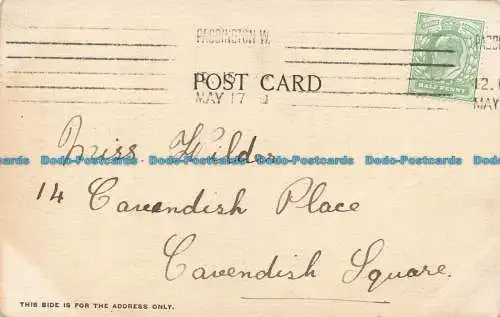 PADDINGTON W.
PADDI
POST CARD
MAY 17
12.
MAY
HALF PENNY
Miss Wilder
14 Cavendish Place
Cavendish Square.
THIS SIDE IS FOR THE ADDRESS ONLY.
Dodo-Postcards Dodo-Postcards Dodo-Postcards Dodo-Postcards